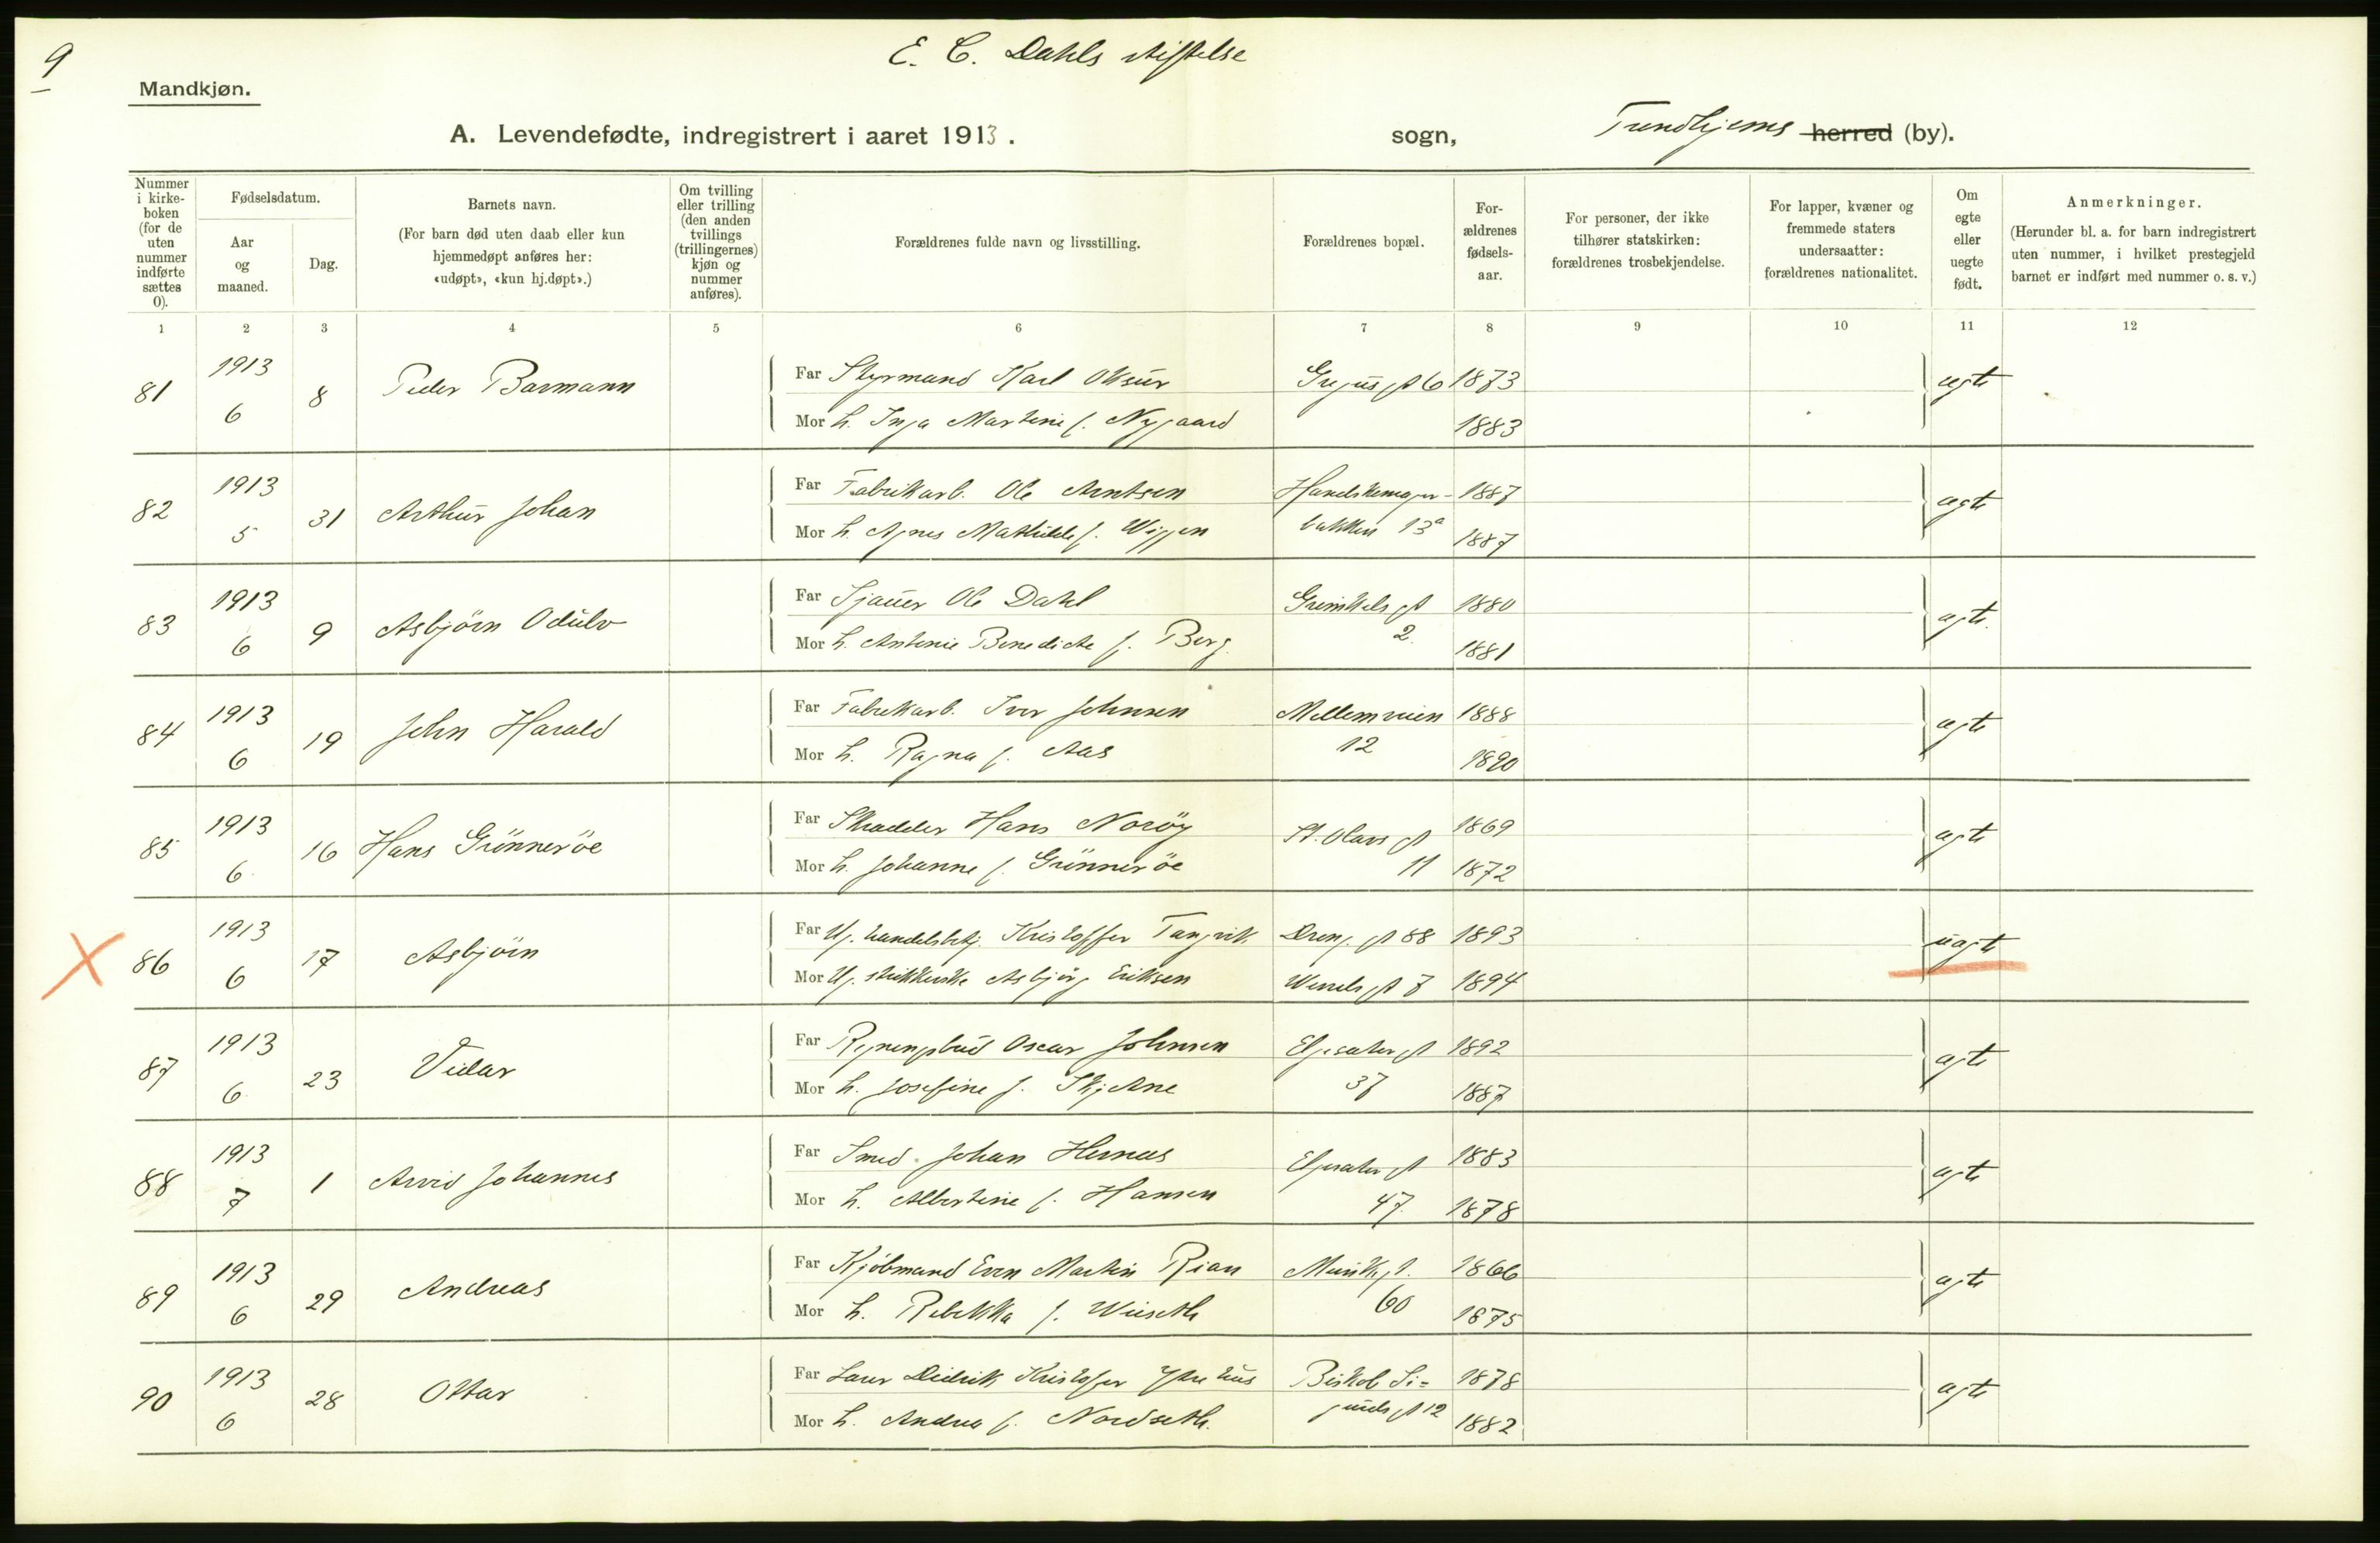 9
E. C. Dahls stiftelse
Mandkjøn.
A. Levendefødte, indregistrert i aaret 1913.
sogn,
Trondhjems herred (by).
Nummer i kirke-boken (for de uten nummer indførte sættes 0).
Fødselsdatum.
Aar og maaned.
Dag.
Barnets navn.
(For barn død uten daab eller kun hjemmedøpt anføres her: «udøpt», «kun hj.døpt».)
Om tvilling eller trilling (den anden tvillings (trillingernes) kjøn og nummer anføres).
Forældrenes fulde navn og livsstilling.
Forældrenes bopæl.
For-ældrenes fødsels-aar.
For personer, der ikke tilhører statskirken: forældrenes trosbekjendelse.
For lapper, kvæner og fremmede staters undersaatter: forældrenes nationalitet.
Om egte eller uegte født.
Anmerkninger.
(Herunder bl. a. for barn indregistrert uten nummer, i hvilket prestegjeld barnet er indført med nummer o. s. v.)
1 2 3 4 5 6 7 8 9 10 11 12
81 1913 6 8 Peder Barmann
Far Styrmand Karl 1873 egte
Mor h. Inga Martine f. Nygaard 1883
82 1913 5 31 Arthur Johan
Far Fabrikarb. Ole Arntsen Handskemager- 1887 egte
Mor h. Agnes Mathilde f. Wiggen bakken 13a 1887
83 1913 6 9 Asbjörn Odulv
Far Sjauer Ole Dahl gt 1880 egte.
Mor h. Antonie Benedicte f. Berg. 2. 1881
84 1913 6 19 John Harald
Far Fabrikarb. Iver Johnsen Mellemveien 1888 egte
Mor h. Ragna f. Aas 12 1890
85 1913 6 16 Hans Grönneröe
Far Skrædder Hans Noröy St. Olavs gt 1869 egte
Mor h. Johanne f. Grönneröe 11 1872
86 1913 6 17 Asbjörn
Far Ug. handelsbetj. Kristoffer Tangvik Dron. gt 88 1893 uegte
Mor Ug. strikkerske Asbjörg Eriksen gt 7 1894
87 1913 6 23 Vidar
Far Oscar Johnsen Elgesæter gt 1892 egte
Mor h. Josefine f. Skjetne 37 1887
88 1913 7 1 Arvid Johannes
Far Smed Johan Hernes Elgesæter gt 1883 egte
Mor h. Albertine f. Hansen 47. 1878
89 1913 6 29 Andreas
Far Kjöbmand Even Martin Rian Munkgt. 1866 egte
Mor h. Rebekka f. Wiseth 60 1875
90 1913 6 28 Ottar
Far Didrik Kristofer Ystehus Biskob Si= 1878 egte
Mor h. Andrea f. Nordseth. gurds gt 12 1882